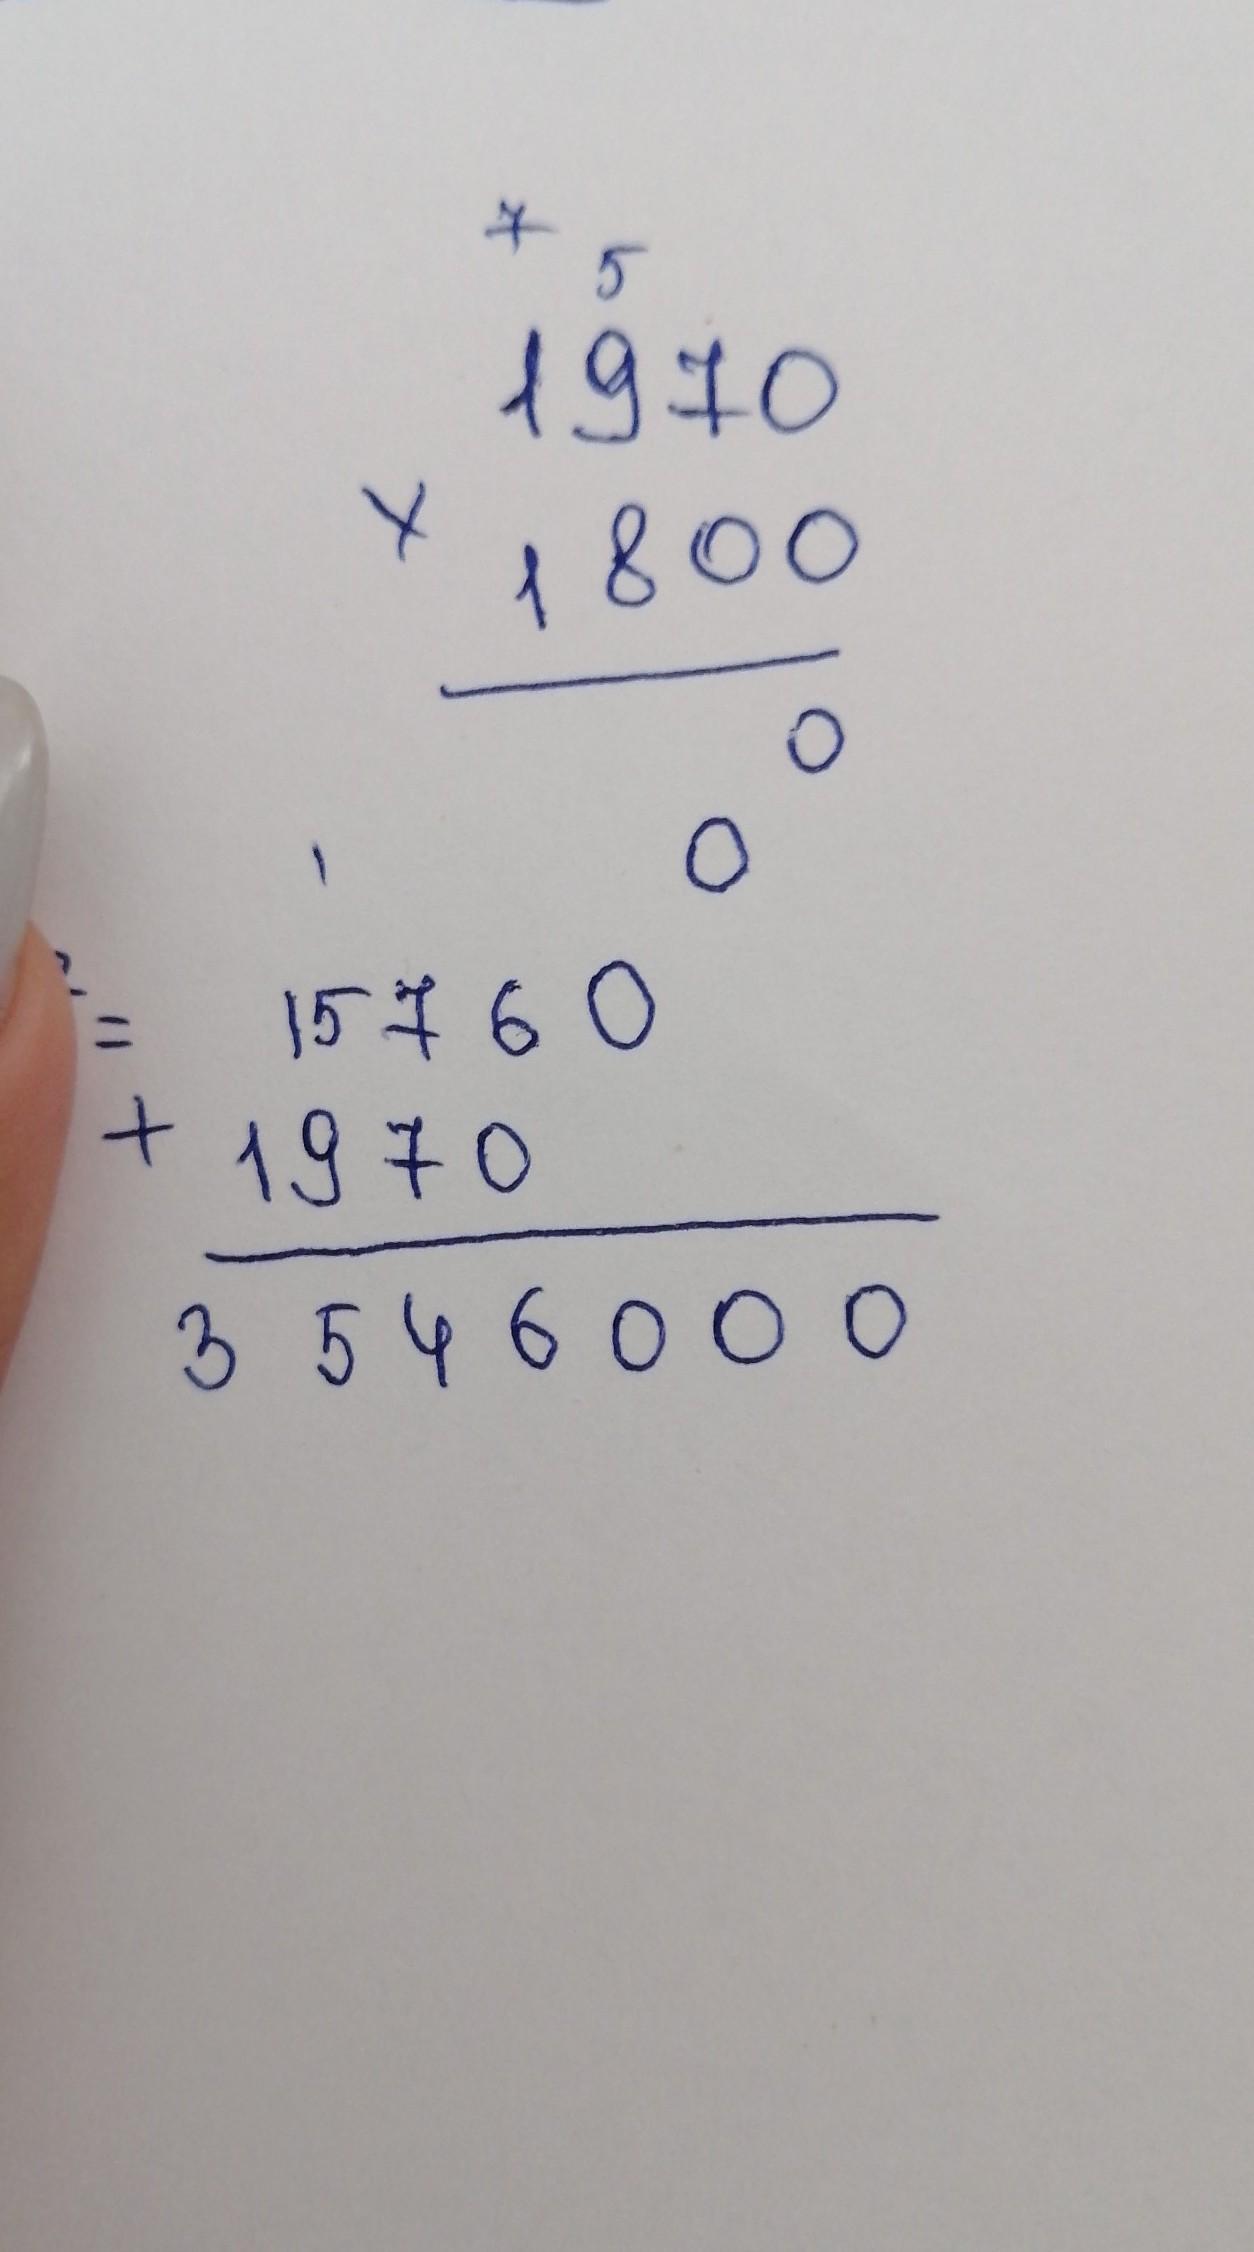 7 5
1970
× 1800
0
1 0
= 15760
+ 1970
3546000